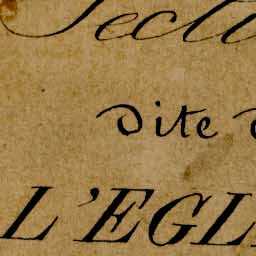 Secti
dite d
L'EGL